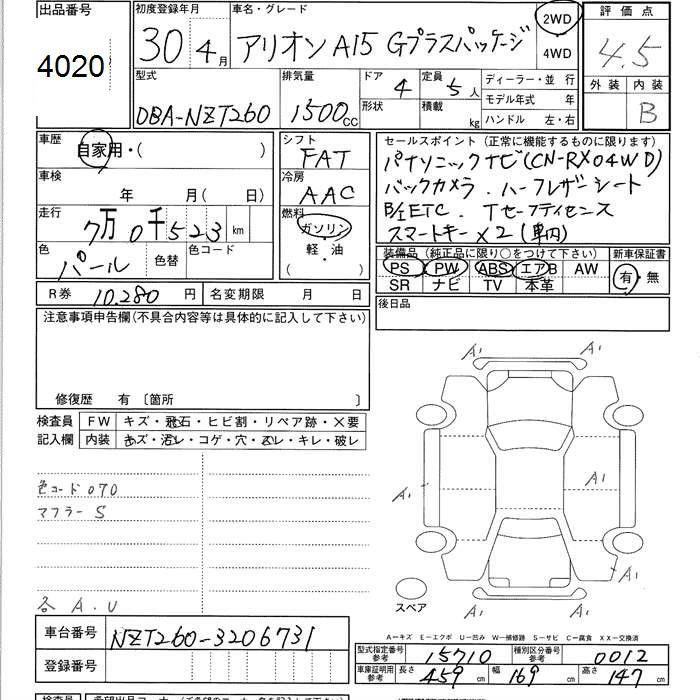 出品番号 初度登録年月 車名・グレード 評価点
4020 30 4月 アリオン A15 Gプラスパッケージ 2WD 4WD 4.5
型式 排気量 ドア 定員 ディーラー・並 行 外装 内装
DBA-NZT260 1500CC 4 5人 モデル年式 年 B
形状 積載 kg ハンドル 左・右
車歴 自家用・( ) シフト FAT セールスポイント (正常に機能するものに限ります)
パナソニックナビ(CN-RX04WD)
車検 年 月( 日) 冷房 AAC バックカメラ. ハーフレザーシート
走行 7万0千523km 燃料 ガソリン ETC. Tセーフティセンス
軽・油 スマートキー×2(車内)
色 パール 色替 色コード ( ) 装備品 (純正品に限り○をつけて下さい) 新車保証書
PS PW ABS エアB AW 有・無
R券 10,280円 名変期限 月 日 SR ナビ TV 本革
注意事項申告欄(不具合内容等は具体的に記入して下さい) 後日品
修復歴 有 〔箇所 〕
検査員 FW キズ・飛石・ヒビ割・リペア跡・×要
記入欄 内装 キズ・汚レ・コゲ・穴・スレ・キレ・破レ
A1 A1
色コード070
マフラーS
A1 A1
A1
A1
各 A.U
スペア
A-キズ E-エクボ U-凹み W-補修跡 S-サビ C-腐食 XX-交換済
車台番号 NZT260-3206731
型式指定番号 参考 15710 種別区分番号 参考 0012
登録番号 車庫証明用 参考 長さ 459cm 幅 169cm 高さ 147cm